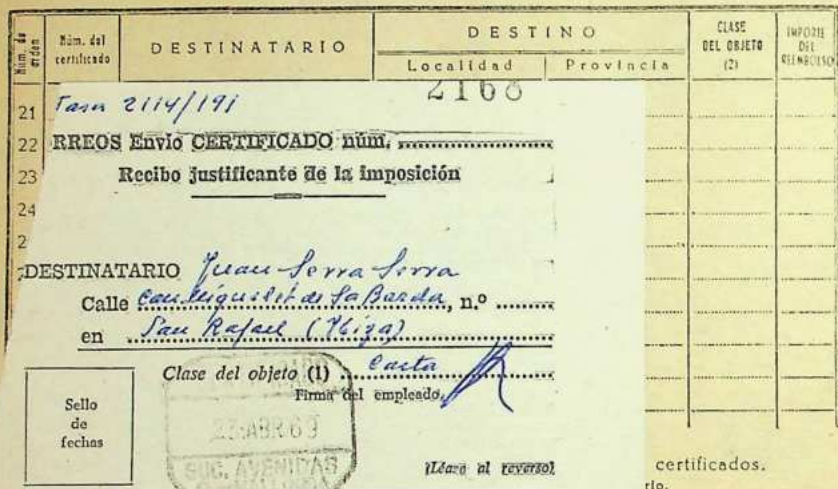 Núm. de orden
Núm. del certificado
DESTINATARIO
DESTINO
Localidad
Provincia
CLASE DEL OBJETO (2)
IMPORTE DEL REEMBOLSO
2168
21
22
23
24
2
Tasa 2114/191
RREOS Envío CERTIFICADO núm.
Recibo justificante de la imposición
DESTINATARIO Juan Serra Serra
Calle Can Miquelet de Sa Barda, n.º
en San Rafael (Ibiza)
Clase del objeto (1) Carta
Firma del empleado,
Sello
de
fechas
23 ABR 69
SUC. AVENIDAS
(Léase al reverso)
certificados.
rio.